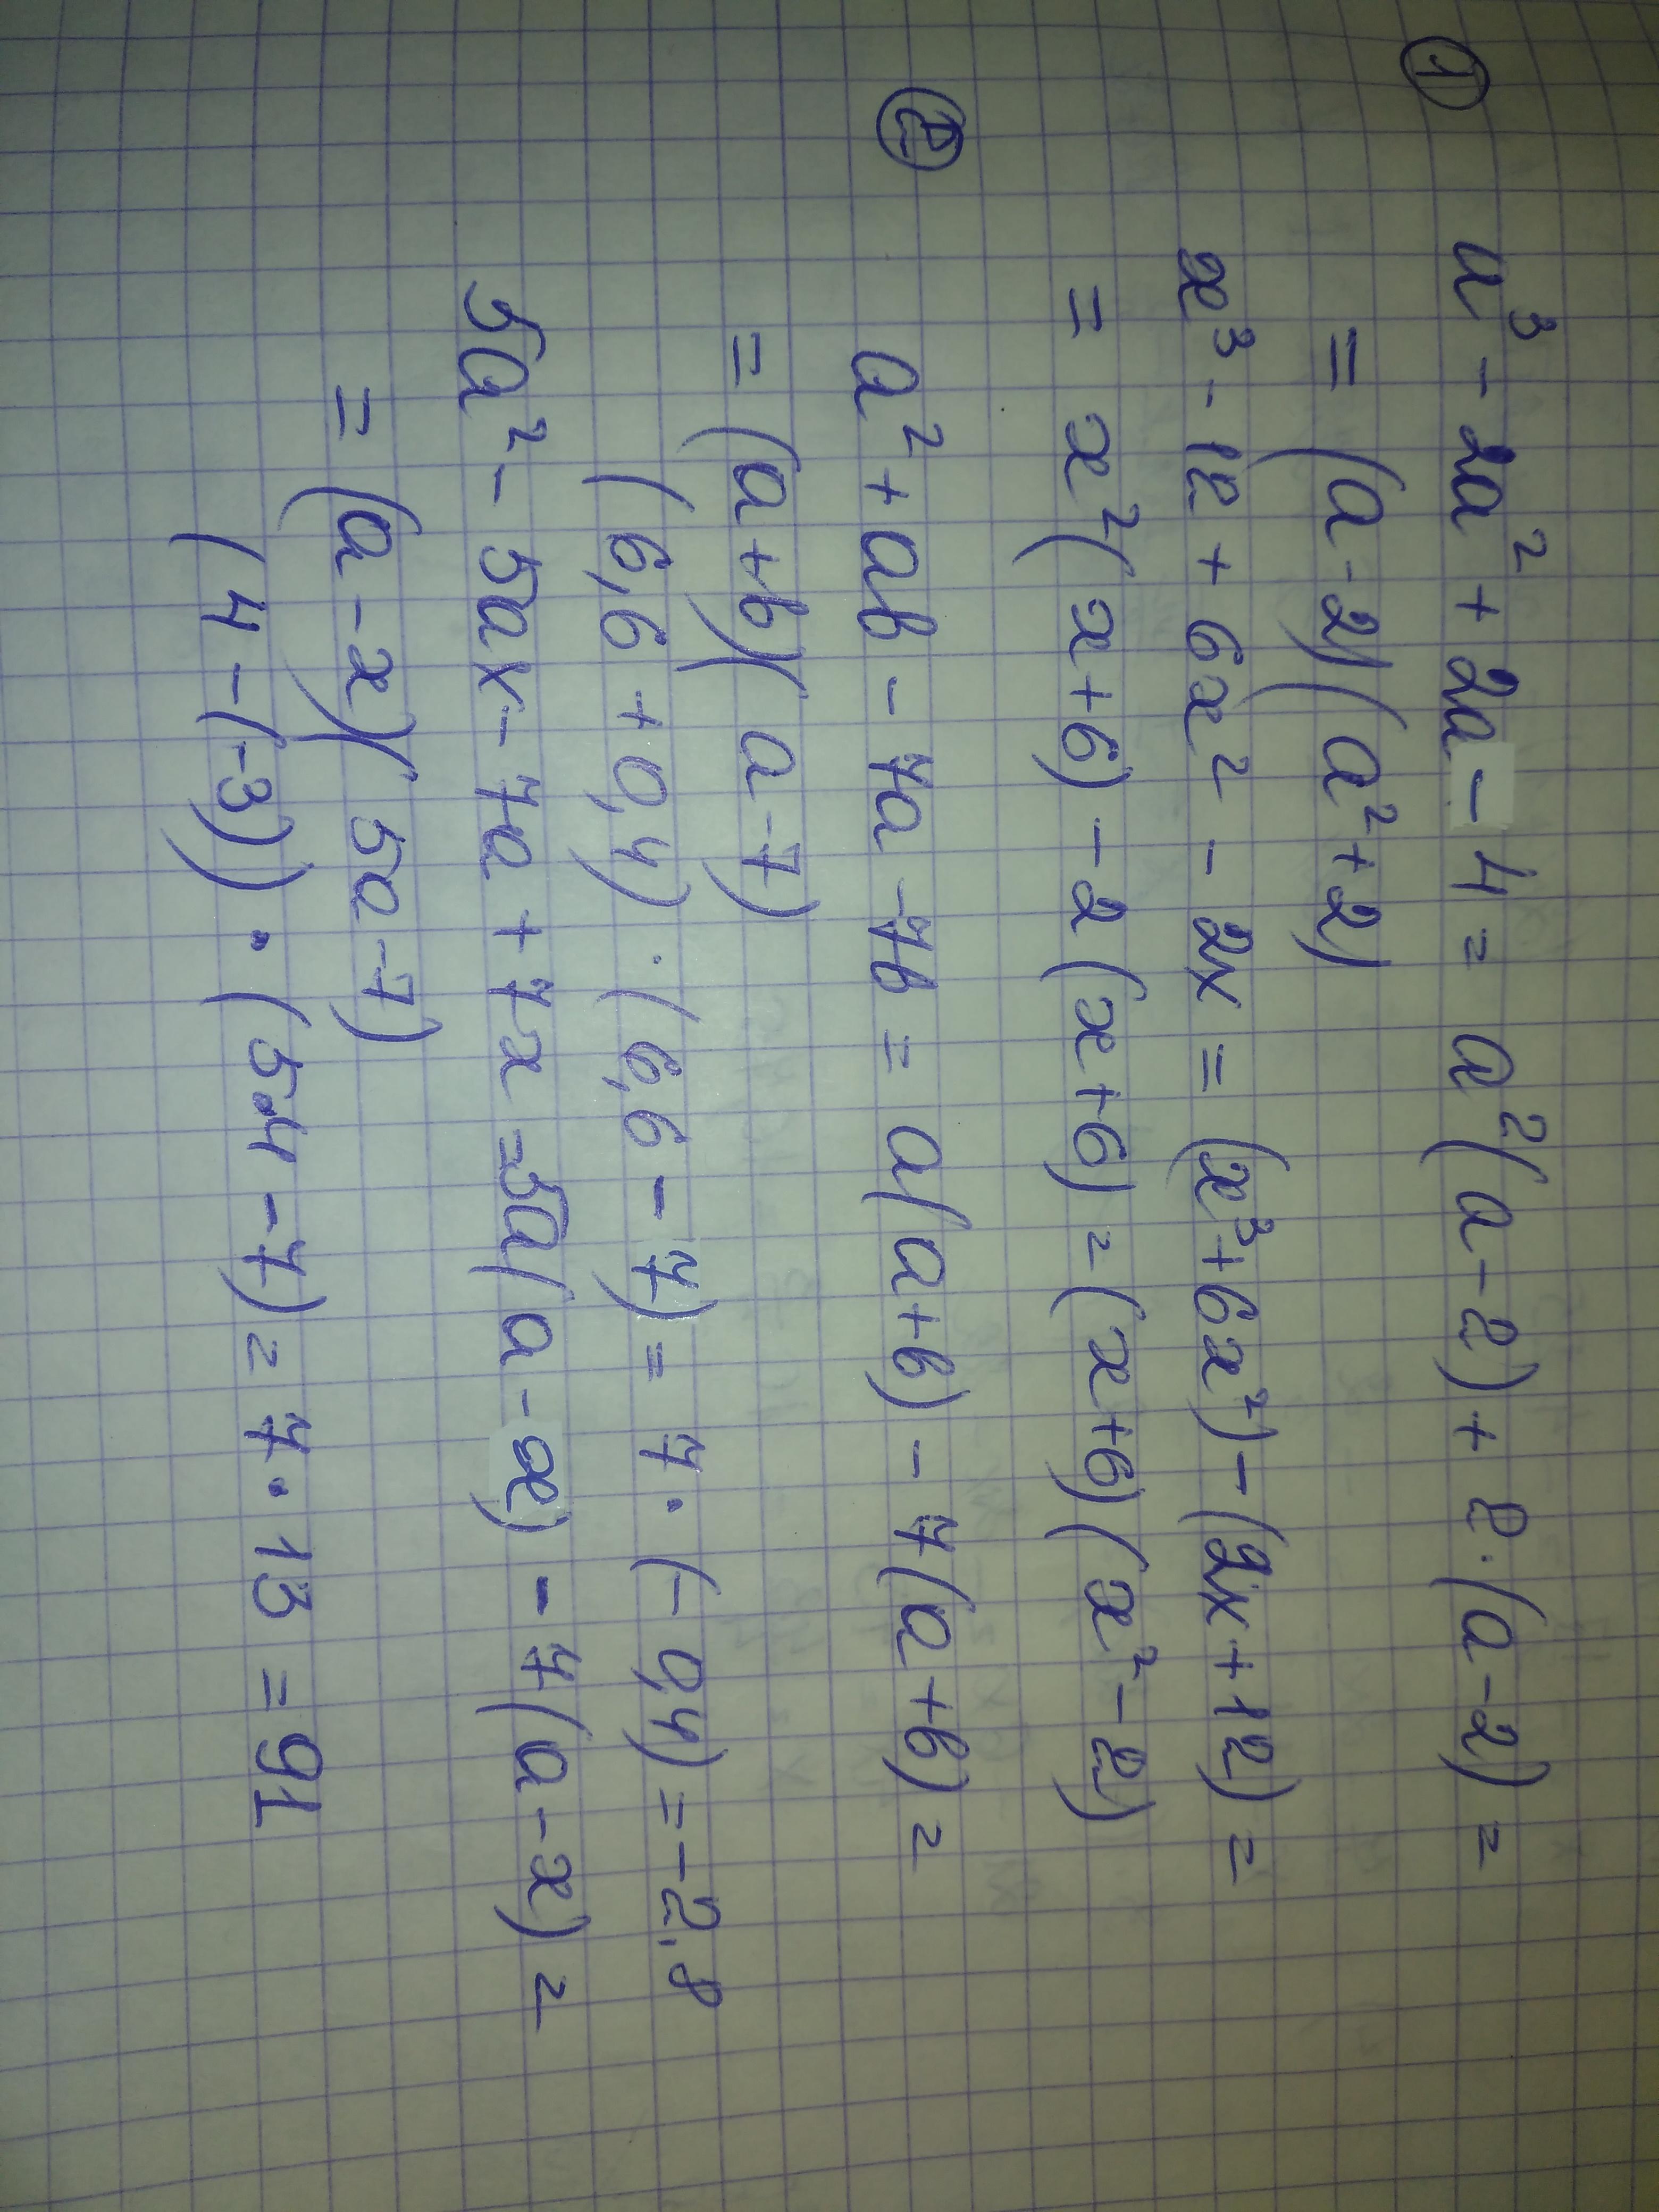 ① a³ - 2a² + 2a - 4 = a²(a - 2) + 2·(a - 2) =
= (a - 2)(a² + 2)
x³ - 12 + 6x² - 2x = (x³ + 6x²) - (2x + 12) =
= x²(x + 6) - 2(x + 6) = (x + 6)(x² - 2)
② a² + ab - 7a - 7b = a(a + b) - 7(a + b) =
= (a + b)(a - 7)
(6,6 + 0,4)·(6,6 - 7) = 7·(- 0,4) = -2,8
5a² - 5ax - 7a + 7x = 5a(a - x) - 7(a - x) =
= (a - x)(5a - 7)
(4 - (-3))·(5·4 - 7) = 7·13 = 91